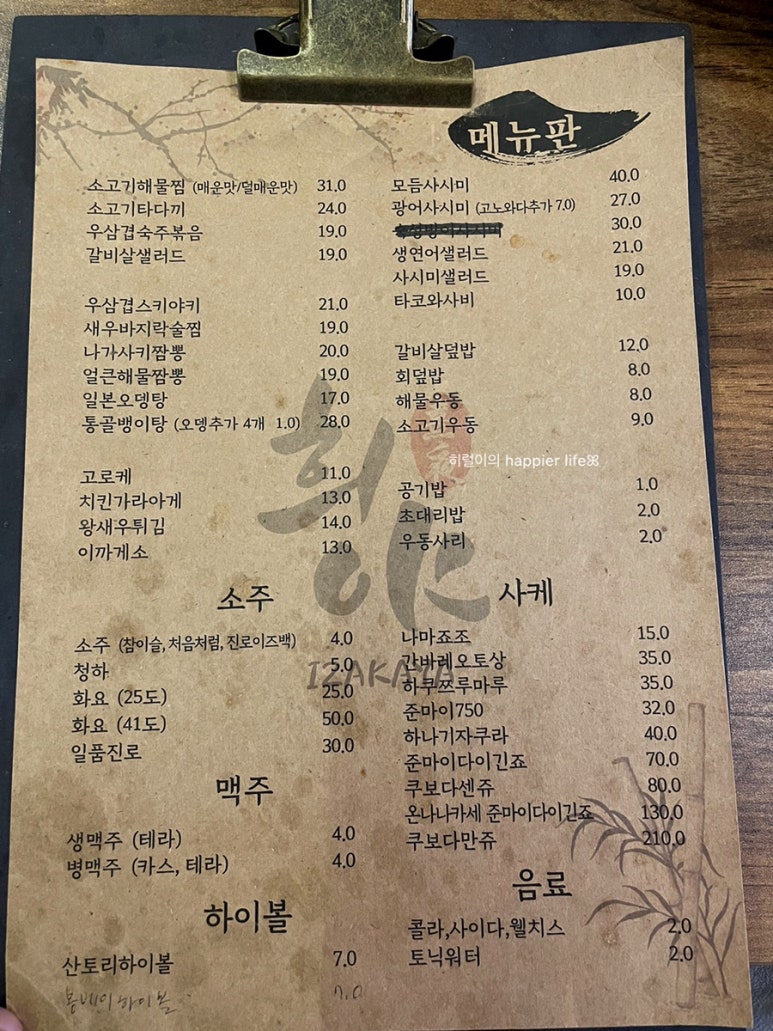 메뉴판
소고기해물찜 (매운맛/덜매운맛) 31.0
소고기타다끼 24.0
우삼겹숙주볶음 19.0
갈비살샐러드 19.0
우삼겹스키야키 21.0
새우바지락술찜 19.0
나가사키짬뽕 20.0
얼큰해물짬뽕 19.0
일본오뎅탕 17.0
통골뱅이탕 (오뎅추가 4개 1.0) 28.0
고로케 11.0
치킨가라아게 13.0
왕새우튀김 14.0
이까게소 13.0
소주
소주 (참이슬,처음처럼,진로이즈백) 4.0
청하 5.0
화요 (25도) 25.0
화요 (41도) 50.0
일품진로 30.0
맥주
생맥주 (테라) 4.0
병맥주 (카스, 테라) 4.0
하이볼
산토리하이볼 7.0
하이볼 7.0
모듬사시미 40.0
광어사시미 (고노와다추가 7.0) 27.0
30.0
생연어샐러드 21.0
사시미샐러드 19.0
타코와사비 10.0
갈비살덮밥 12.0
회덮밥 8.0
해물우동 8.0
소고기우동 9.0
히럴이의 happier life
공기밥 1.0
초대리밥 2.0
우동사리 2.0
사케
나마죠조 15.0
간바레오토상 35.0
하쿠쯔루마루 35.0
준마이750 32.0
하나기자쿠라 40.0
준마이다이긴죠 70.0
쿠보다센쥬 80.0
온나나카세 준마이다이긴죠 130.0
쿠보다만쥬 210.0
음료
콜라,사이다,웰치스 2.0
토닉워터 2.0
IZAKAYA